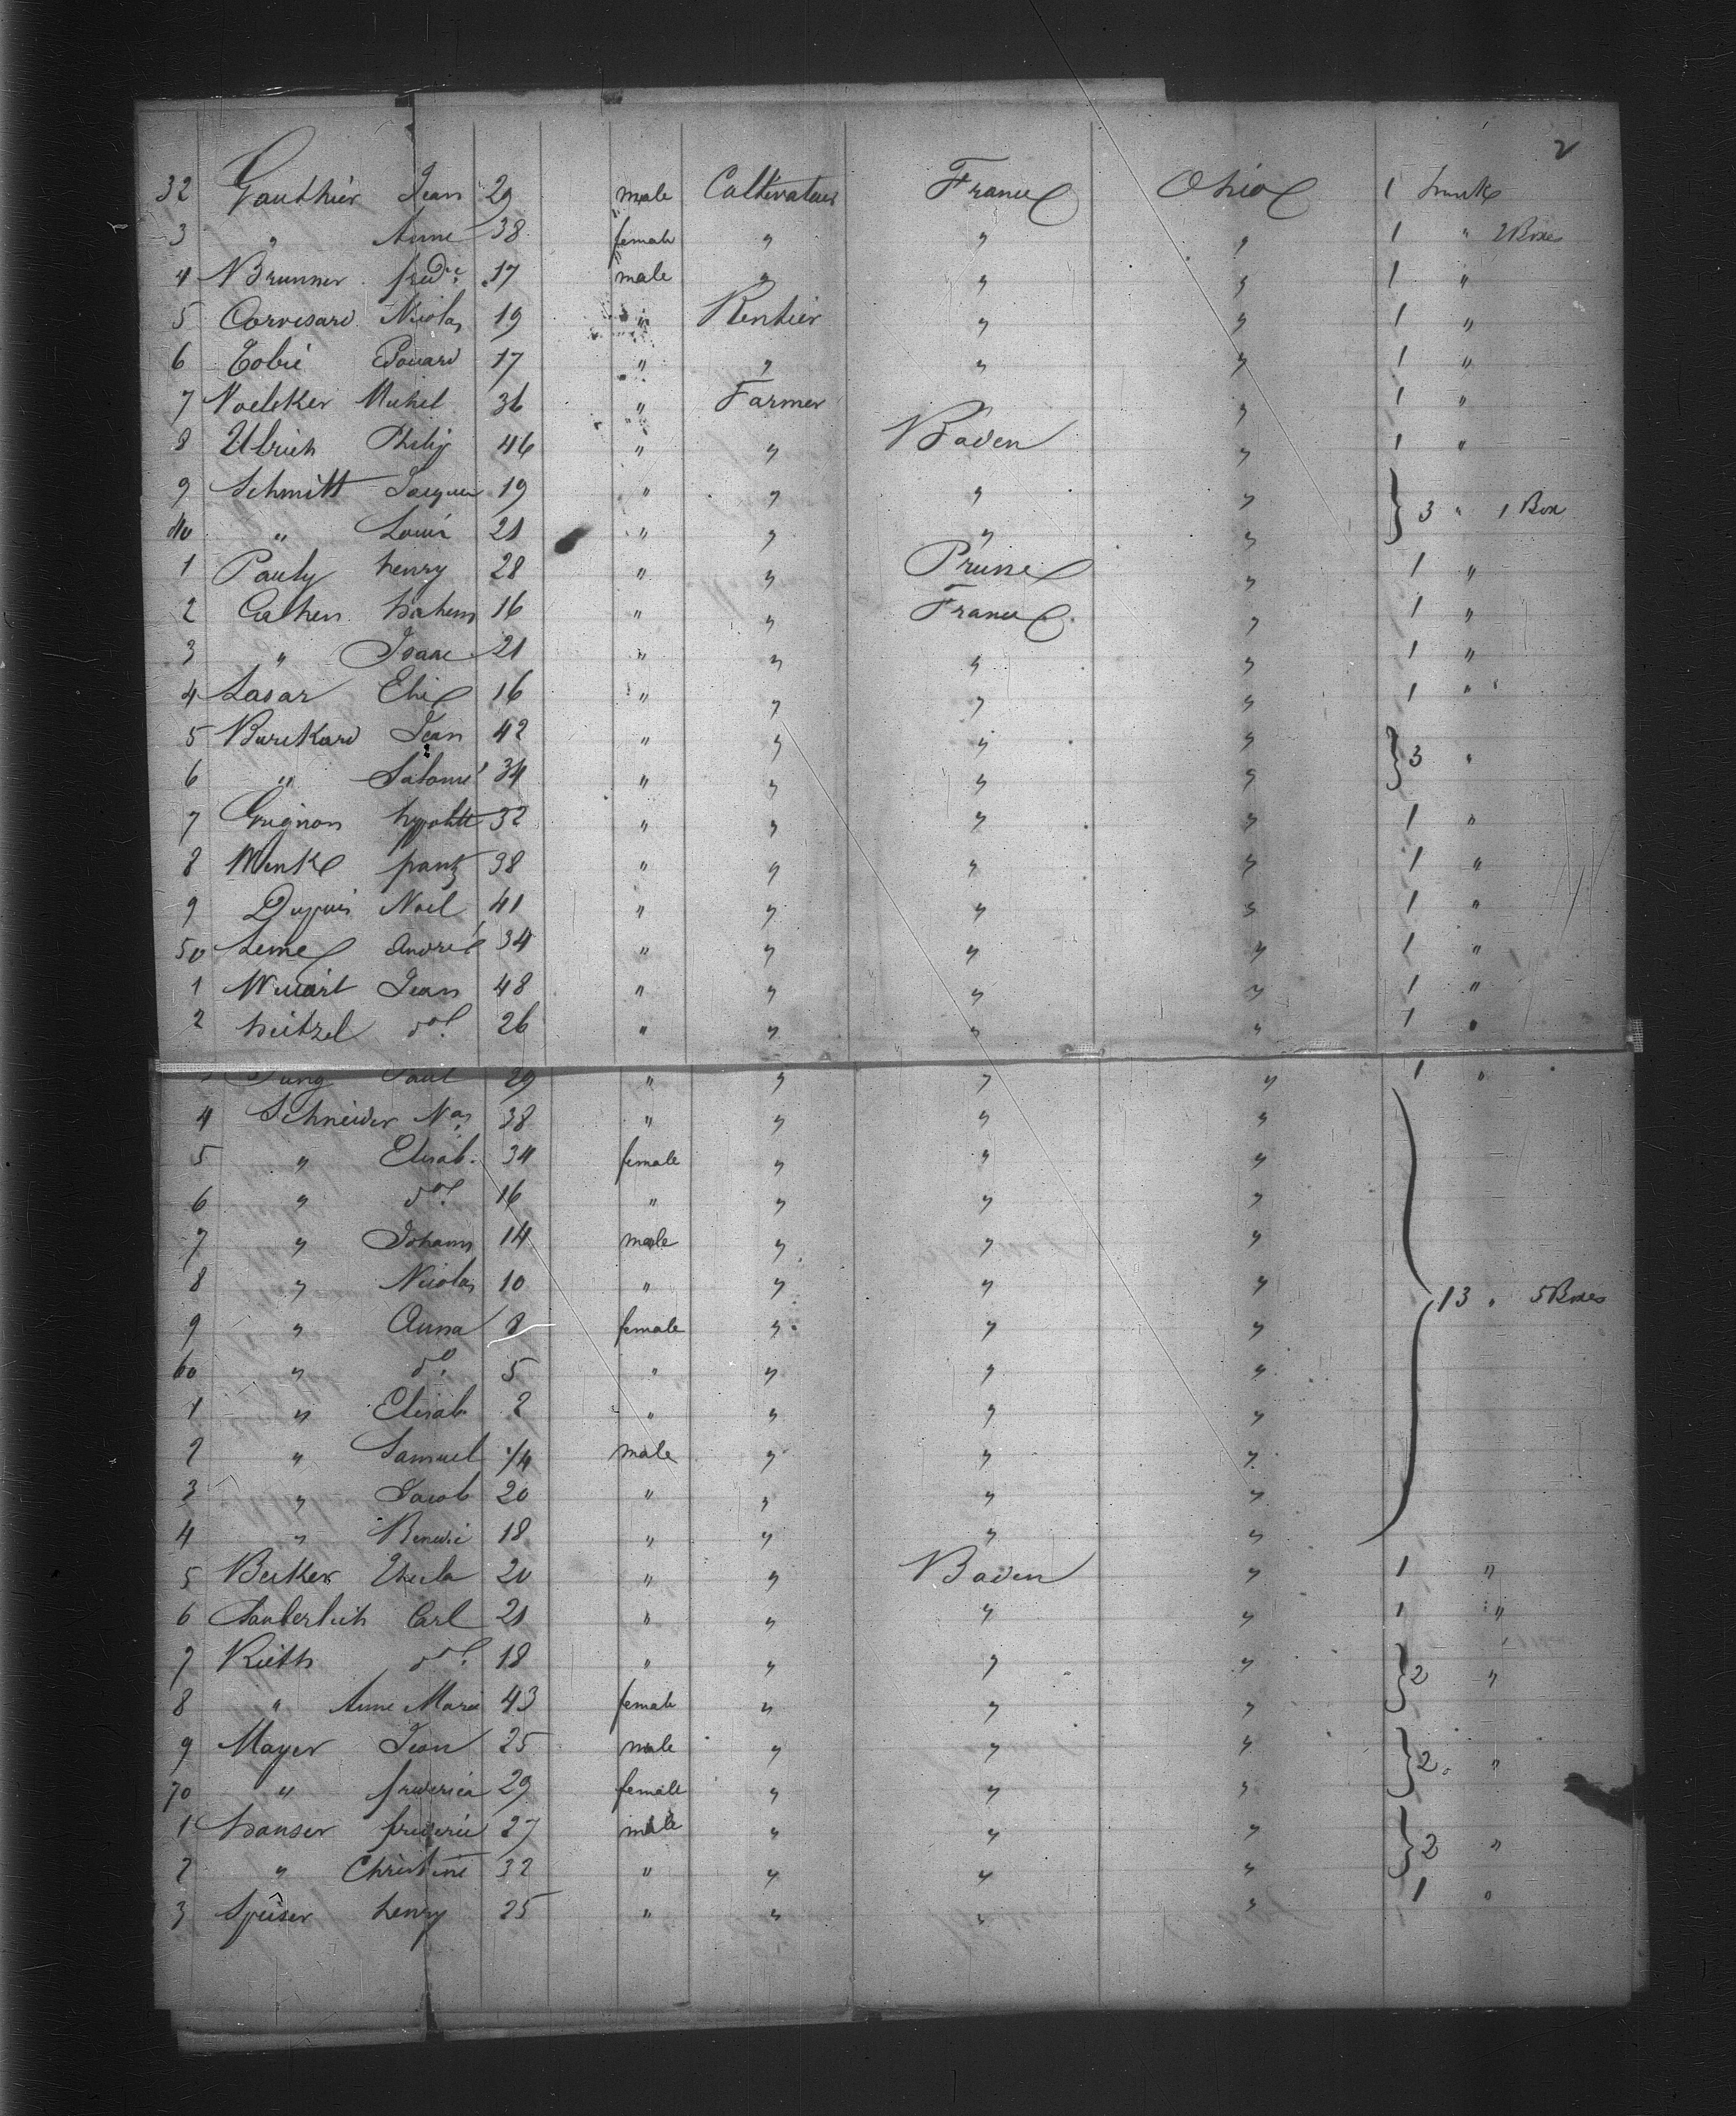 2
32 Gauthier Jean 29 male Cultivateur France Ohio 1 trunk
3 " Anne 38 female " " " 1 " 2 Boxes
4 Brunner fredc 17 male " " " 1 "
5 Corvisard Nicolas 19 " Rentier " " 1 "
6 Tobie Edouard 17 " " " " 1 "
7 Noelcker Michel 36 " Farmer " 1 "
8 Ulrich Philip 46 " " Baden " 1 "
9 Schmitt Jacques 19 " " " "
40 " Louis 21 " " " " } 3 " 1 Box
1 Pauly henry 28 " " Prusse " 1 "
2 Cahen 16 " " France " 1 "
3 " Isaac 21 " " " " 1 "
4 Lasar Elie 16 " " " " 1 "
5 Burckard Jean 42 " " " "
6 " Salomé 34 " " " " } 3 "
7 Grignon hyppolitt 32 " " " " 1 "
8 Menke frantz 38 " " " " 1 "
9 Dupuis Noel 41 " " " " 1 "
50 André 34 " " " " 1 "
1 Jean 48 " " " " 1 "
2 heitzel do 26 " " " " 1 "
Jung Paul 29 " " " " 1 "
4 Schneider Nas 38 " " " "
5 " Elisab. 34 female " " "
6 " do 16 " " " "
7 " Johann 14 male " " "
8 " Nicolas 10 " " " " } 13 " 5 Boxes
9 " Anna 8 female " " "
60 " do 5 " " " "
1 " Elisab 2 " " " "
2 " Samuel 1/4 male " " "
3 " Jacob 20 " " " "
4 " 18 " " " "
5 Becker Thecla 20 " " Baden " 1 "
6 Sauberlich Carl 21 " " " " 1 "
7 Rieth do 18 " " " " } 2 "
8 " Anne Marie 43 female " " "
9 Mayer Jean 25 male " " " } 2 "
70 " frederica 29 female " " "
1 hanser frederic 27 male " " " } 2 "
2 " Christine 32 " " " "
3 Speiser henry 25 " " " " 1 "